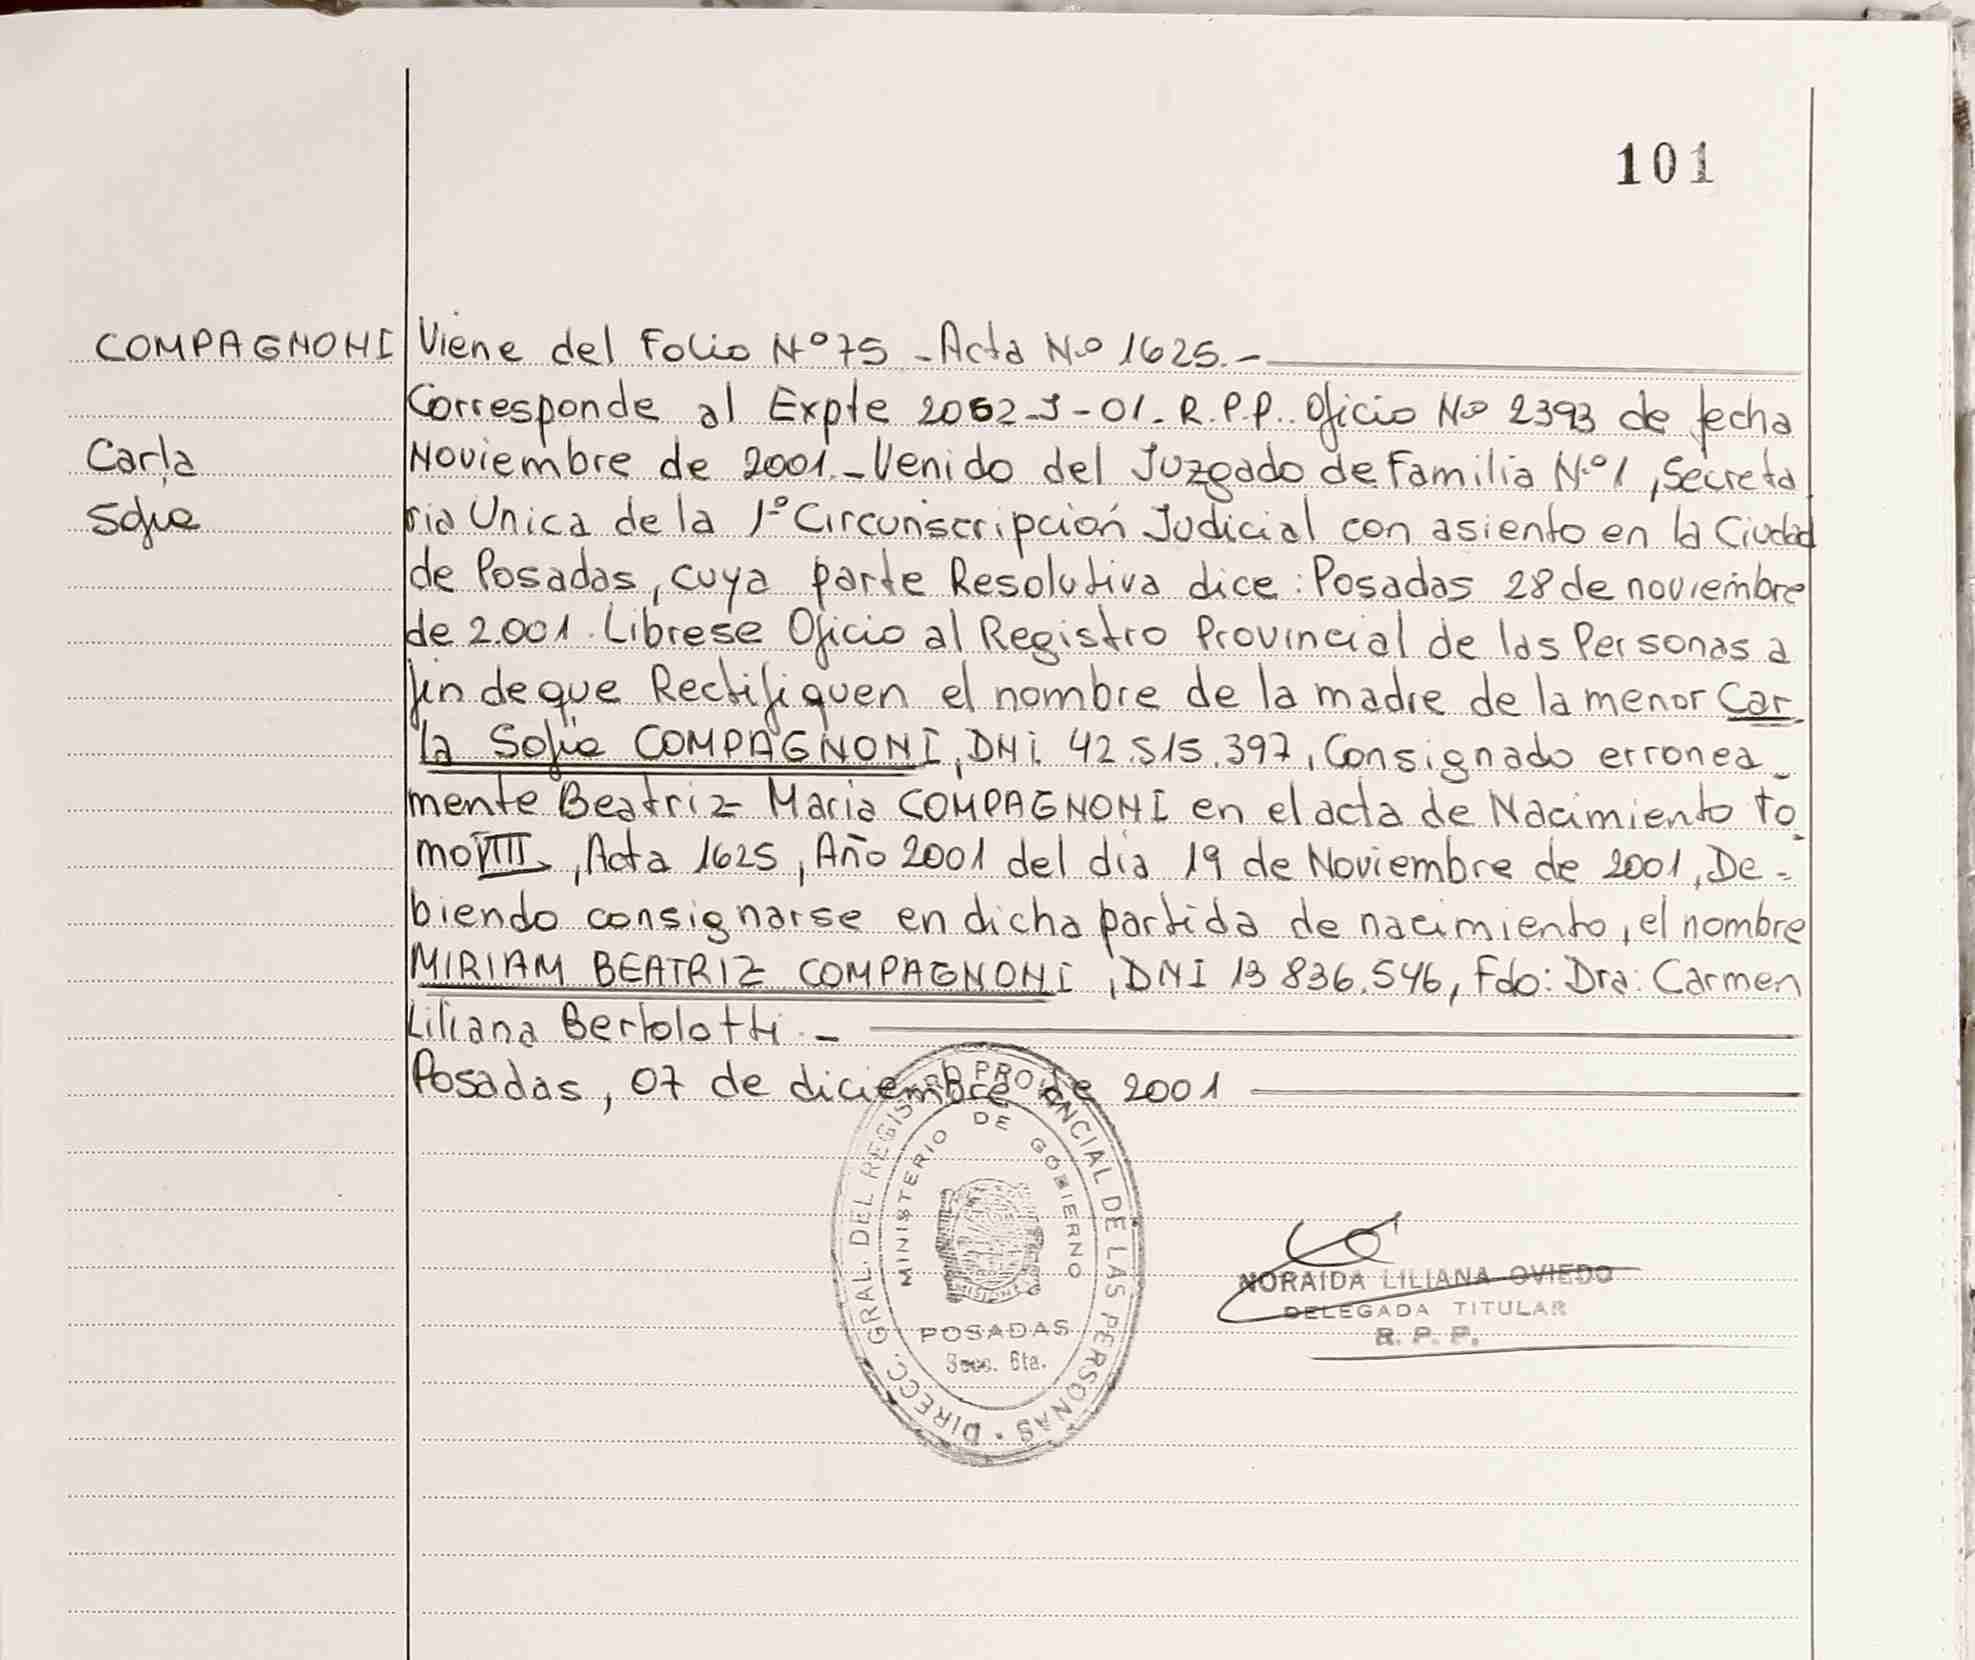 101
COMPAGNONI
Carla
Sofia
Viene del Folio Nº 75 - Acta Nº 1625.-
Corresponde al Expte 2062-J-01. R.P.P.. Oficio Nº 2393 de fecha
Noviembre de 2001.- Venido del Juzgado de Familia Nº 1, Secreta
ria Unica de la 1º Circunscripción Judicial con asiento en la Ciudad
de Posadas, cuya parte Resolutiva dice: Posadas 28 de noviembre
de 2.001. Librese Oficio al Registro Provincial de las Personas a
fin de que Rectifiquen el nombre de la madre de la menor Car
la Sofia COMPAGNONI, DNI. 42.515.397, Consignado erronea-
mente Beatriz Maria COMPAGNONI en el acta de Nacimiento To
mo VIII, Acta 1625, Año 2001 del día 19 de Noviembre de 2001, De-
biendo consignarse en dicha partida de nacimiento, el nombre
MIRIAM BEATRIZ COMPAGNONI, DNI 13 836.546, Fdo: Dra: Carmen
Liliana Bertolotti.-
Posadas, 07 de diciembre de 2001
DIRECC. GRAL. DEL REGISTRO PROVINCIAL DE LAS PERSONAS
MINISTERIO DE GOBIERNO
MISIONES
POSADAS
Secc. 6ta.
NORAIDA LILIANA OVIEDO
DELEGADA TITULAR
R. P. P.